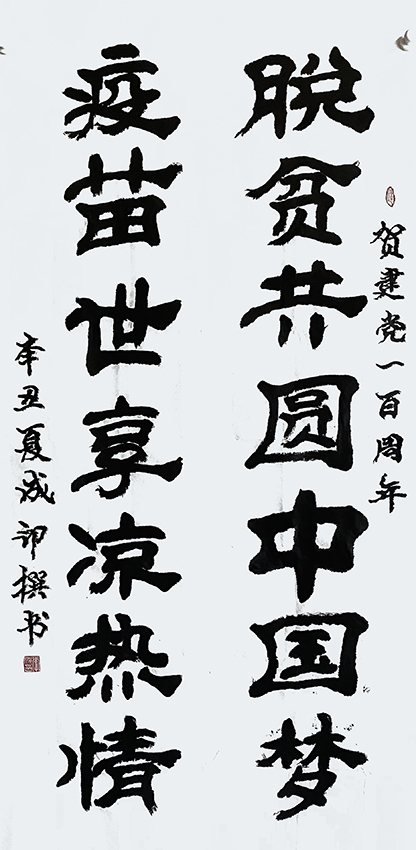 贺建党一百周年
脱贫共圆中国梦
疫苗世享凉热情
辛丑夏诚印撰书